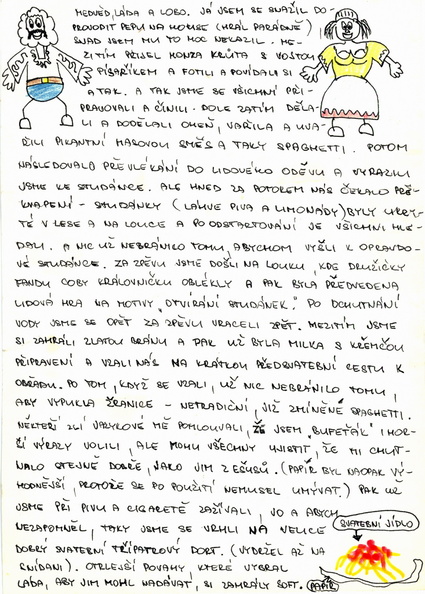 MEDVĚD, LÁĎA A LOBO. JÁ JSEM SE SNAŽIL DO-
PROVODIT PEPU NA HOUSLE (HRÁL PARÁDNĚ)
SNAD JSEM MU TO MOC NEKAZIL. ME-
ZITÍM PŘIJEL HONZA KRŮTA S VOJTOU
PÍSAŘÍKEM A FOTILI A POVÍDALI SI
A TAK. A TAK JSME SE VŠICHNI PŘI-
PRAVOVALI A ČINILI. DOLE ZATÍM DĚLA-
LI A DODĚLALI OHEŇ, VAŘILA A UVA-
ŘILI PIKANTNÍ MASOVOU SMĚS A TAKY SPAGHETTI. POTOM
NÁSLEDOVALO PŘEVLÉKÁNÍ DO LIDOVÉHO ODĚVU A VYRAZILI
JSME KE STUDÁNCE. ALE HNED ZA POTOKEM NÁS ČEKALO PŘE-
KVAPENÍ - STUDÁNKY (LAHVE PIVA A LIMONÁDY) BYLY UKRY-
TÉ V LESE A NA LOUCE A PO ODSTARTOVÁNÍ JE VŠICHNI HLE-
DALI. A NIC UŽ NEBRÁNILO TOMU, ABYCHOM VYŠLI K OPRAVDO-
VÉ STUDÁNCE. ZA ZPĚVU JSME DOŠLI NA LOUKU, KDE DRUŽIČKY
FANDU COBY KRÁLOVNIČKU OBLÉKLY A PAK BYLA PŘEDVEDENA
LIDOVÁ HRA NA MOTIVY "OTVÍRÁNÍ STUDÁNEK". PO OCHUTNÁNÍ
VODY JSME SE OPĚT ZA ZPĚVU VRACELI ZPĚT. MEZITÍM JSME
SI ZAHRÁLI ZLATOU BRÁNU A PAK UŽ BYLA MILKA S KŘEMČOU
PŘIPRAVENÍ A VZALI NÁS NA KRÁTKOU PŘEDSVATEBNÍ CESTU K
OBŘADU. PO TOM, KDYŽ SE VZALI, UŽ NIC NEBRÁNILO TOMU,
ABY VYPUKLA ŽRANICE - NETRADIČNÍ, JIŽ ZMÍNĚNÉ SPAGHETTI.
NĚKTEŘÍ ZLÍ JAZYKOVÉ MĚ POMLOUVALI, ŽE JSEM "BUFEŤÁK" I HOR-
ŠÍ VÝRAZY VOLILI, ALE MOHU VŠECHNY UJISTIT, ŽE MI CHUT-
NALO STEJNĚ DOBŘE, JAKO JIM Z EŠUSŮ. (PAPÍR BYL NAOPAK VÝ-
HODNĚJŠÍ, PROTOŽE SE PO POUŽITÍ NEMUSEL UMÝVAT.) PAK UŽ
JSME PŘI PIVU A CIGARETĚ ZAŽÍVALI, JO A ABYCH
NEZAPOMNĚL, TAKY JSME SE VRHLI NA VELICE
DOBRÝ SVATEBNÍ TŘÍPATROVÝ DORT. (VYDRŽEL AŽ NA
SNÍDANI). OTRLEJŠÍ POVAHY, KTERÉ VYBRAL
LÁĎA, ABY JIM MOHL NADÁVAT, SI ZAHRÁLY SOFT.
SVATEBNÍ JÍDLO
PAPÍR